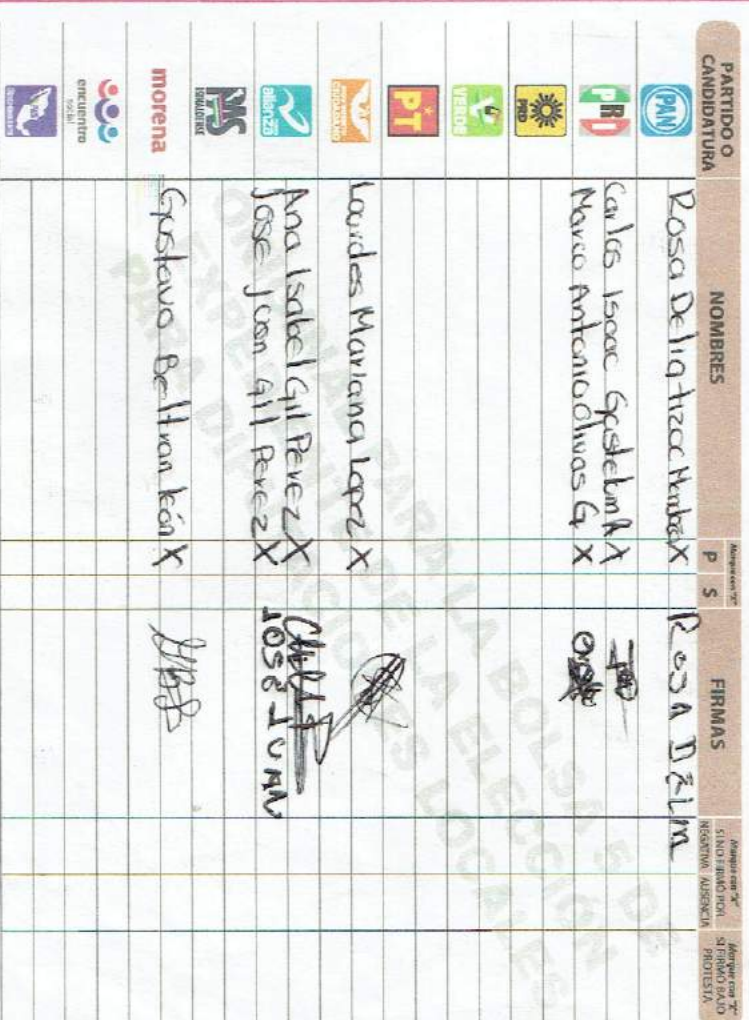 PARTIDO O CANDIDATURA
NOMBRES
Marque con "X"
P S
FIRMAS
Marque con "X" SI NO FIRMÓ POR
NEGATIVA AUSENCIA
Marque con "X" SI FIRMÓ BAJO PROTESTA
PAN Rosa Delia X Rosa Delia
PRI Carlos Isaac X
Marco Antonio Olivas G X
PRD
VERDE
PT
CIUDADANO Lourdes Mariana Lopez X
alianza Ana Isabel Gil Perez X
Jose Juan Gil Perez X JOSÉ JUAN
PAS
SINALOENSE
morena Gustavo Beltran León X
encuentro social
ORIGINAL PARA LA BOLSA 5 DE
EXPEDIENTE DE LA ELECCIÓN
PARA DIPUTACIONES LOCALES